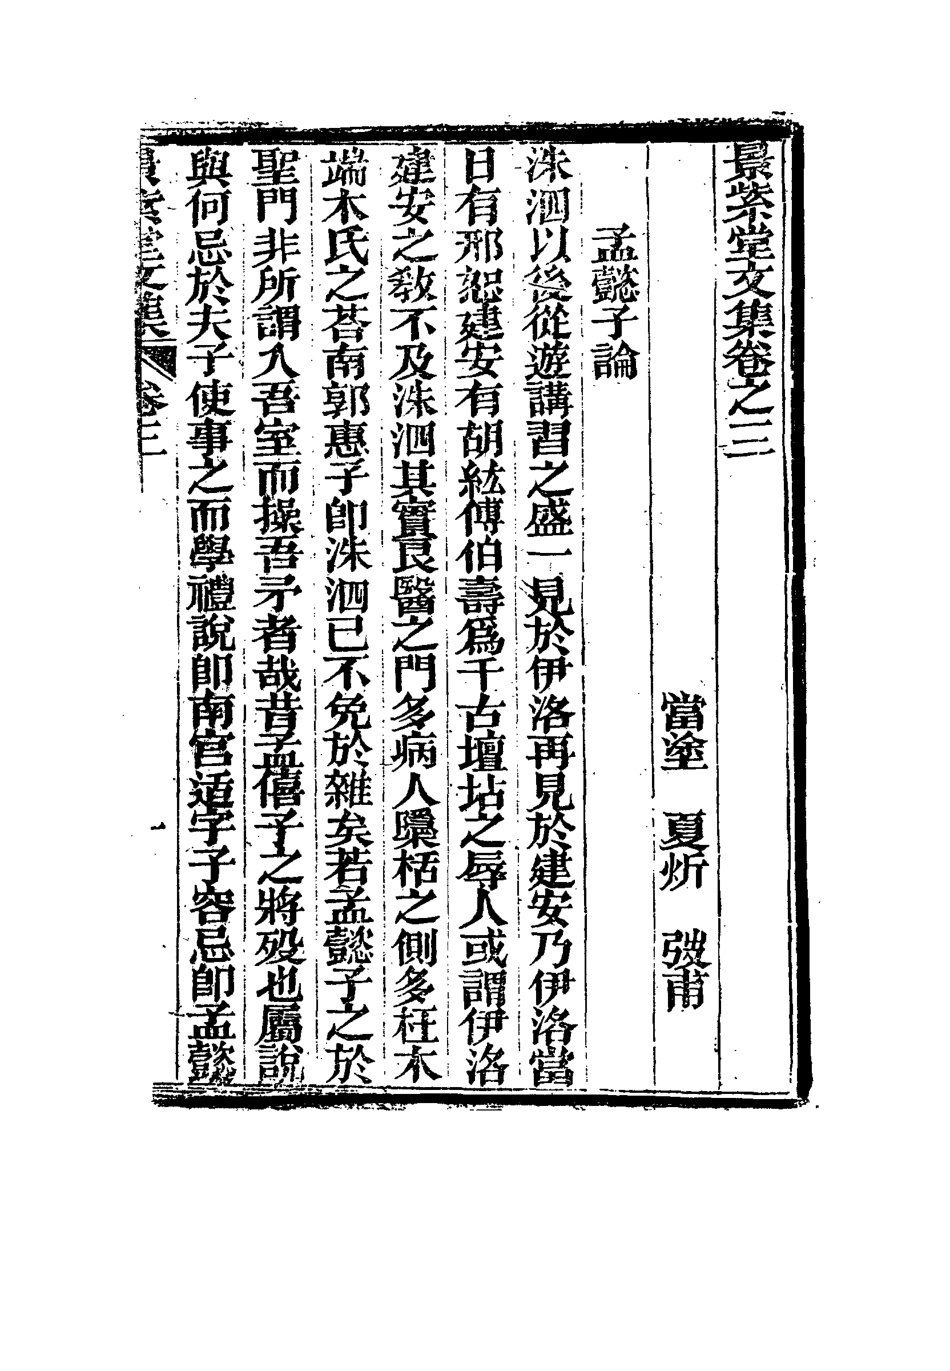 景紫堂文集卷之三
當塗 夏炘 弢甫
孟懿子論
洙泗以後從遊講習之盛一見於伊洛再見於建安乃伊洛當
日有邢恕建安有胡紘傅伯壽爲千古壇坫之辱人或謂伊洛
建安之敎不及洙泗其實良醫之門多病人檃栝之側多枉木
端木氏之荅南郭惠子卽洙泗已不免於雜矣若孟懿子之於
聖門非所謂入吾室而操吾矛者哉昔孟僖子之將歿也屬說
與何忌於夫子使事之而學禮說卽南宮适字子容忌卽孟懿
景紫堂文集 卷三
一